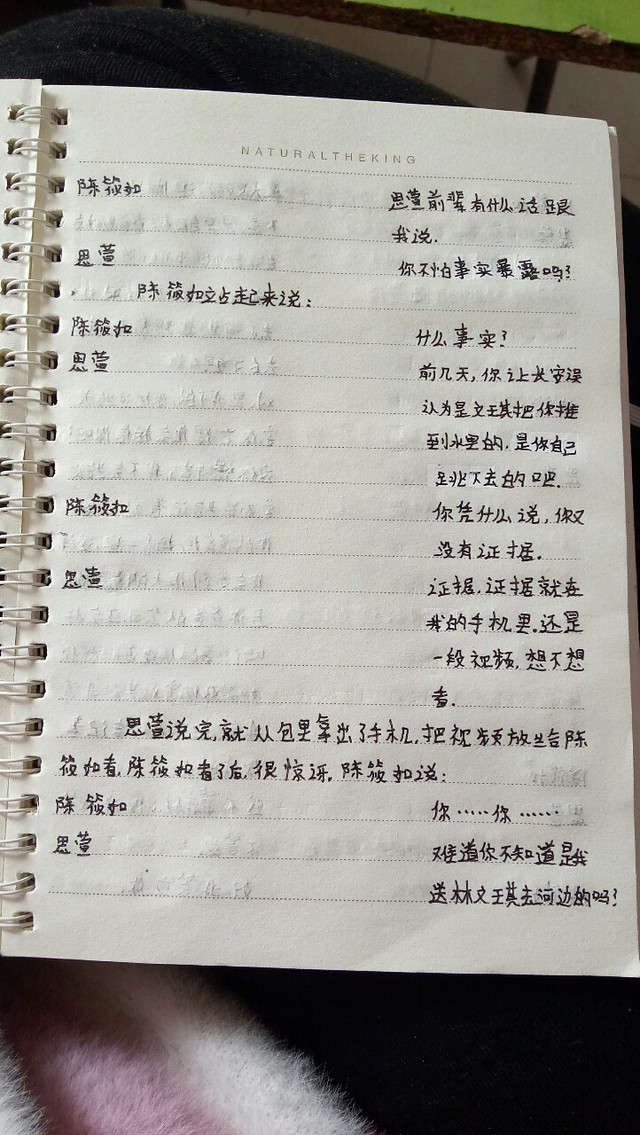 NATURALTHEKING
陈筱如 思萱前辈有什么话跟
我说.
思萱 你不怕事实暴露吗?
陈筱如站起来说:
陈筱如 什么事实?
思萱 前几天,你让长安误
认为是文琪把你推
到水里的,是你自己
跳下去的吧.
陈筱如 你凭什么说,你又
没有证据.
思萱 证据,证据就在
我的手机里.还是
一段视频,想不想
看.
思萱说完,就从包里拿出了手机,把视频放给陈
筱如看,陈筱如看了后,很惊讶,陈筱如说:
陈筱如 你……你……
思萱 难道你不知道是我
送林文琪去河边的吗?